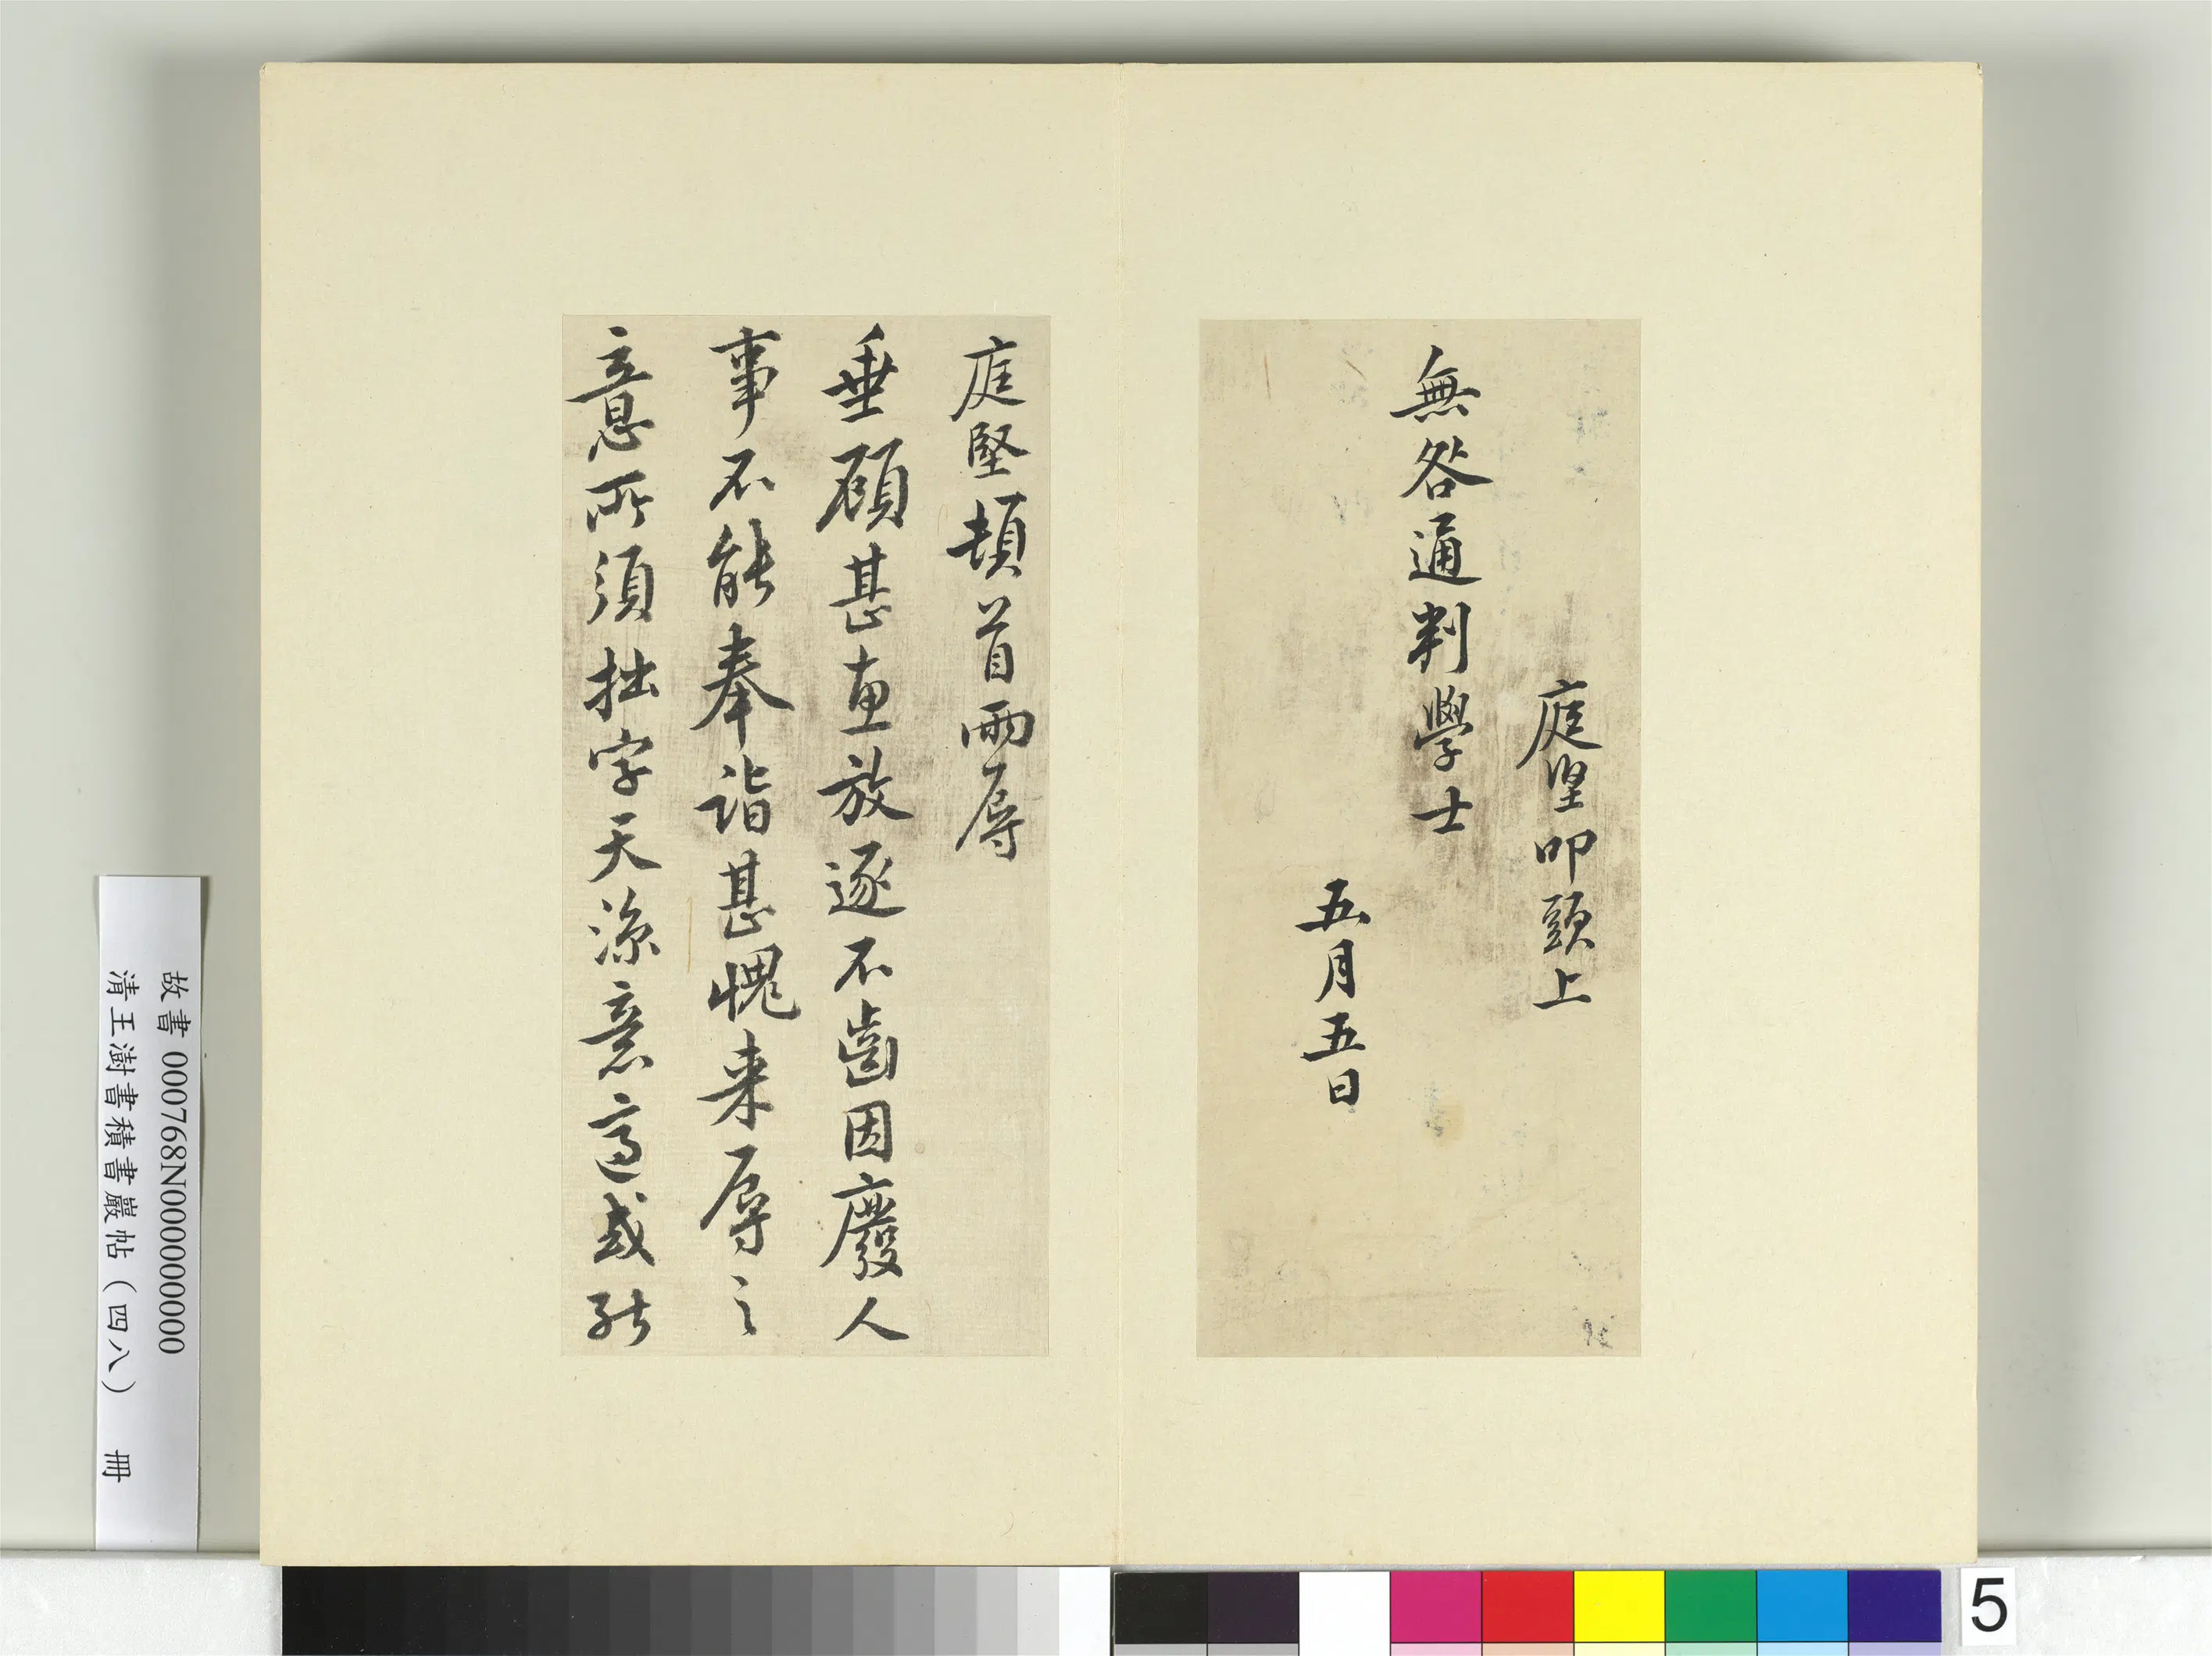 庭堅叩頭上
無咎通判學士
五月五日
庭堅頓首兩辱
垂顧甚惠放逐不齒因廢人
事不能奉詣甚愧来辱之
意所須拙字天涼意適或能
故書 000768N000000000
清王澍書積書巖帖（四八） 冊
5